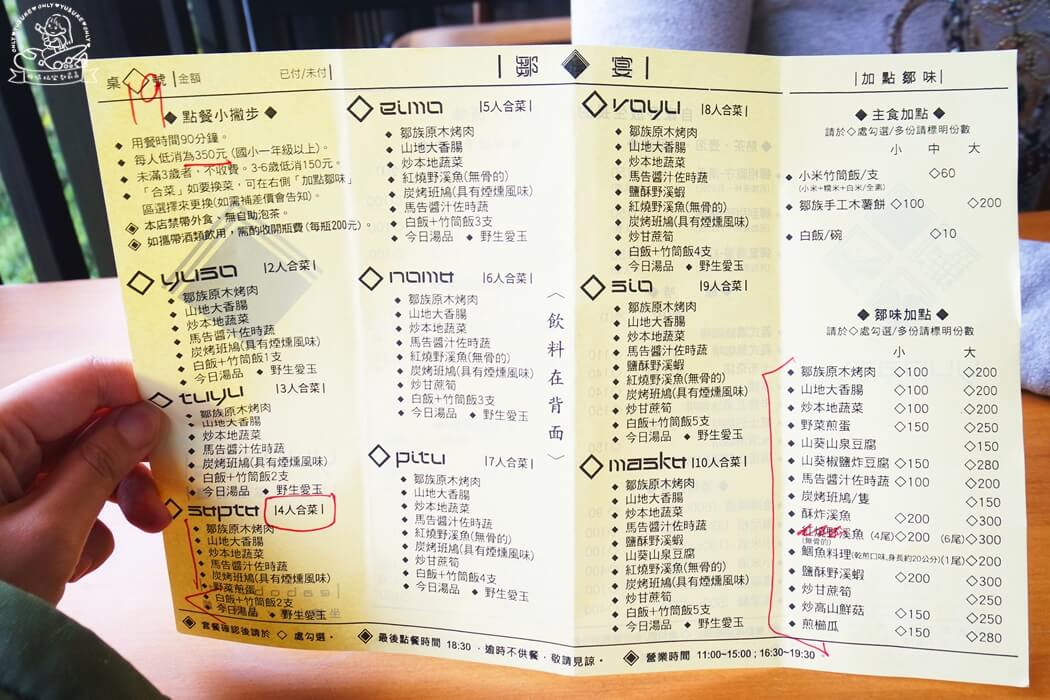 ONLY YUBUKE ONLY
桌 號 |金額 已付/未付|
19
|鄒◆宴|
◆ 點餐小撇步 ◆
◆ 用餐時間90分鐘。
◆ 每人低消為350元(國小一年級以上)。
◆ 未滿3歲者，不收費。3-6歲低消150元。
◆ 「合菜」如要換菜，可在右側「加點鄒味」
區選擇來更換(如需補差價會告知)。
◈ 本店禁帶外食、無自助泡茶。
◈ 如攜帶酒類飲用，需酌收開瓶費(每瓶200元)。
◇ yuso |2人合菜|
◆ 鄒族原木烤肉
◆ 山地大香腸
◆ 炒本地蔬菜
◆ 馬告醬汁佐時蔬
◆ 炭烤班鳩(具有煙燻風味)
◆ 白飯+竹筒飯1支
◆ 今日湯品 ◆ 野生愛玉
◇ tuyu |3人合菜|
◆ 鄒族原木烤肉
◆ 山地大香腸
◆ 炒本地蔬菜
◆ 馬告醬汁佐時蔬
◆ 炭烤班鳩(具有煙燻風味)
◆ 白飯+竹筒飯2支
◆ 今日湯品 ◆ 野生愛玉
◇ sapto |4人合菜|
◆ 鄒族原木烤肉
◆ 山地大香腸
◆ 炒本地蔬菜
◆ 馬告醬汁佐時蔬
◆ 炭烤班鳩(具有煙燻風味)
◆ 野菜煎蛋
◆ 白飯+竹筒飯2支
◆ 今日湯品 ◆ 野生愛玉
◇ eimo |5人合菜|
◆ 鄒族原木烤肉
◆ 山地大香腸
◆ 炒本地蔬菜
◆ 紅燒野溪魚(無骨的)
◆ 炭烤班鳩(具有煙燻風味)
◆ 馬告醬汁佐時蔬
◆ 野菜煎餅
◆ 白飯+竹筒飯3支
◆ 今日湯品 ◆ 野生愛玉
◇ nomo |6人合菜|
◆ 鄒族原木烤肉
◆ 山地大香腸
◆ 炒本地蔬菜
◆ 馬告醬汁佐時蔬
◆ 紅燒野溪魚(無骨的)
◆ 炭烤班鳩(具有煙燻風味)
◆ 炒甘蔗筍
◆ 白飯+竹筒飯3支
◆ 今日湯品 ◆ 野生愛玉
◇ pitu |7人合菜|
◆ 鄒族原木烤肉
◆ 山地大香腸
◆ 炒本地蔬菜
◆ 馬告醬汁佐時蔬
◆ 紅燒野溪魚(無骨的)
◆ 炭烤班鳩(具有煙燻風味)
◆ 炒甘蔗筍
◆ 白飯+竹筒飯4支
◆ 今日湯品 ◆ 野生愛玉
〈飲料在背面〉
◇ voyu |8人合菜|
◆ 鄒族原木烤肉
◆ 山地大香腸
◆ 炒本地蔬菜
◆ 馬告醬汁佐時蔬
◆ 鹽酥野溪蝦
◆ 紅燒野溪魚(無骨的)
◆ 炭烤班鳩(具有煙燻風味)
◆ 炒甘蔗筍
◆ 白飯+竹筒飯4支
◆ 今日湯品 ◆ 野生愛玉
◇ sio |9人合菜|
◆ 鄒族原木烤肉
◆ 山地大香腸
◆ 炒本地蔬菜
◆ 馬告醬汁佐時蔬
◆ 鹽酥野溪蝦
◆ 紅燒野溪魚(無骨的)
◆ 炭烤班鳩(具有煙燻風味)
◆ 炒甘蔗筍
◆ 白飯+竹筒飯5支
◆ 今日湯品 ◆ 野生愛玉
◇ masko |10人合菜|
◆ 鄒族原木烤肉
◆ 山地大香腸
◆ 炒本地蔬菜
◆ 馬告醬汁佐時蔬
◆ 鹽酥野溪蝦
◆ 山葵豆腐
◆ 紅燒野溪魚(無骨的)
◆ 炭烤班鳩(具有煙燻風味)
◆ 炒甘蔗筍
◆ 白飯+竹筒飯5支
◆ 今日湯品 ◆ 野生愛玉
|加點鄒味|
◆ 主食加點 ◆
請於◇處勾選/多份請標明份數
小 中 大
◆ 小米竹筒飯/支 ◇60
(小米+糯米+白米/全素)
◆ 鄒族手工木薯餅 ◇100 ◇200
◆ 白飯/碗 ◇10
◆ 鄒味加點 ◆
請於◇處勾選/多份請標明份數
小 大
◆ 鄒族原木烤肉 ◇100 ◇200
◆ 山地大香腸 ◇100 ◇200
◆ 炒本地蔬菜 ◇100 ◇200
◆ 野菜煎蛋 ◇150 ◇250
◆ 山葵山泉豆腐 ◇150
◆ 山葵椒鹽炸豆腐 ◇150 ◇280
◆ 馬告醬汁佐時蔬 ◇100 ◇200
◆ 炭烤班鳩/隻 ◇150
◆ 酥炸溪魚 ◇200 ◇300
◆ 紅燒野溪魚 (4尾)◇200 (6尾)◇300
(無骨的)
◆ 鯝魚料理(乾煎口味,身長約20公分)(1尾)◇200
◆ 鹽酥野溪蝦 ◇200 ◇300
◆ 炒甘蔗筍 ◇250
◆ 炒高山鮮菇 ◇150 ◇250
◆ 煎櫛瓜 ◇150 ◇280
◈ 套餐確認後請於 ◇ 處勾選。 ◈ 最後點餐時間 18:30 ，逾時不供餐，敬請見諒。 ◈ 營業時間 11:00~15:00 ; 16:30~19:30